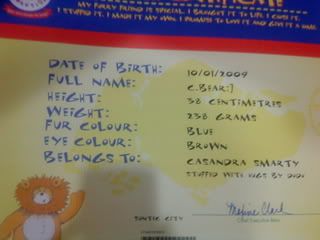 MY FURRY FRIEND IS SPECIAL. I BROUGHT IT TO LIFE. I CHOSE IT.
I STUFFED IT. I MADE IT MY OWN. I PROMISE TO LOVE IT AND GIVE IT A HOME.
DATE OF BIRTH: 10/01/2009
FULL NAME: C.BEAR:]
HEIGHT: 38 CENTIMETRES
WEIGHT: 238 GRAMS
FUR COLOUR: BLUE
EYE COLOUR: BROWN
BELONGS TO: CASANDRA SMARTY
STUFFED WITH HUGS BY DODO
SUNTEC CITY
Maxine Clark
Chief Executive Bear